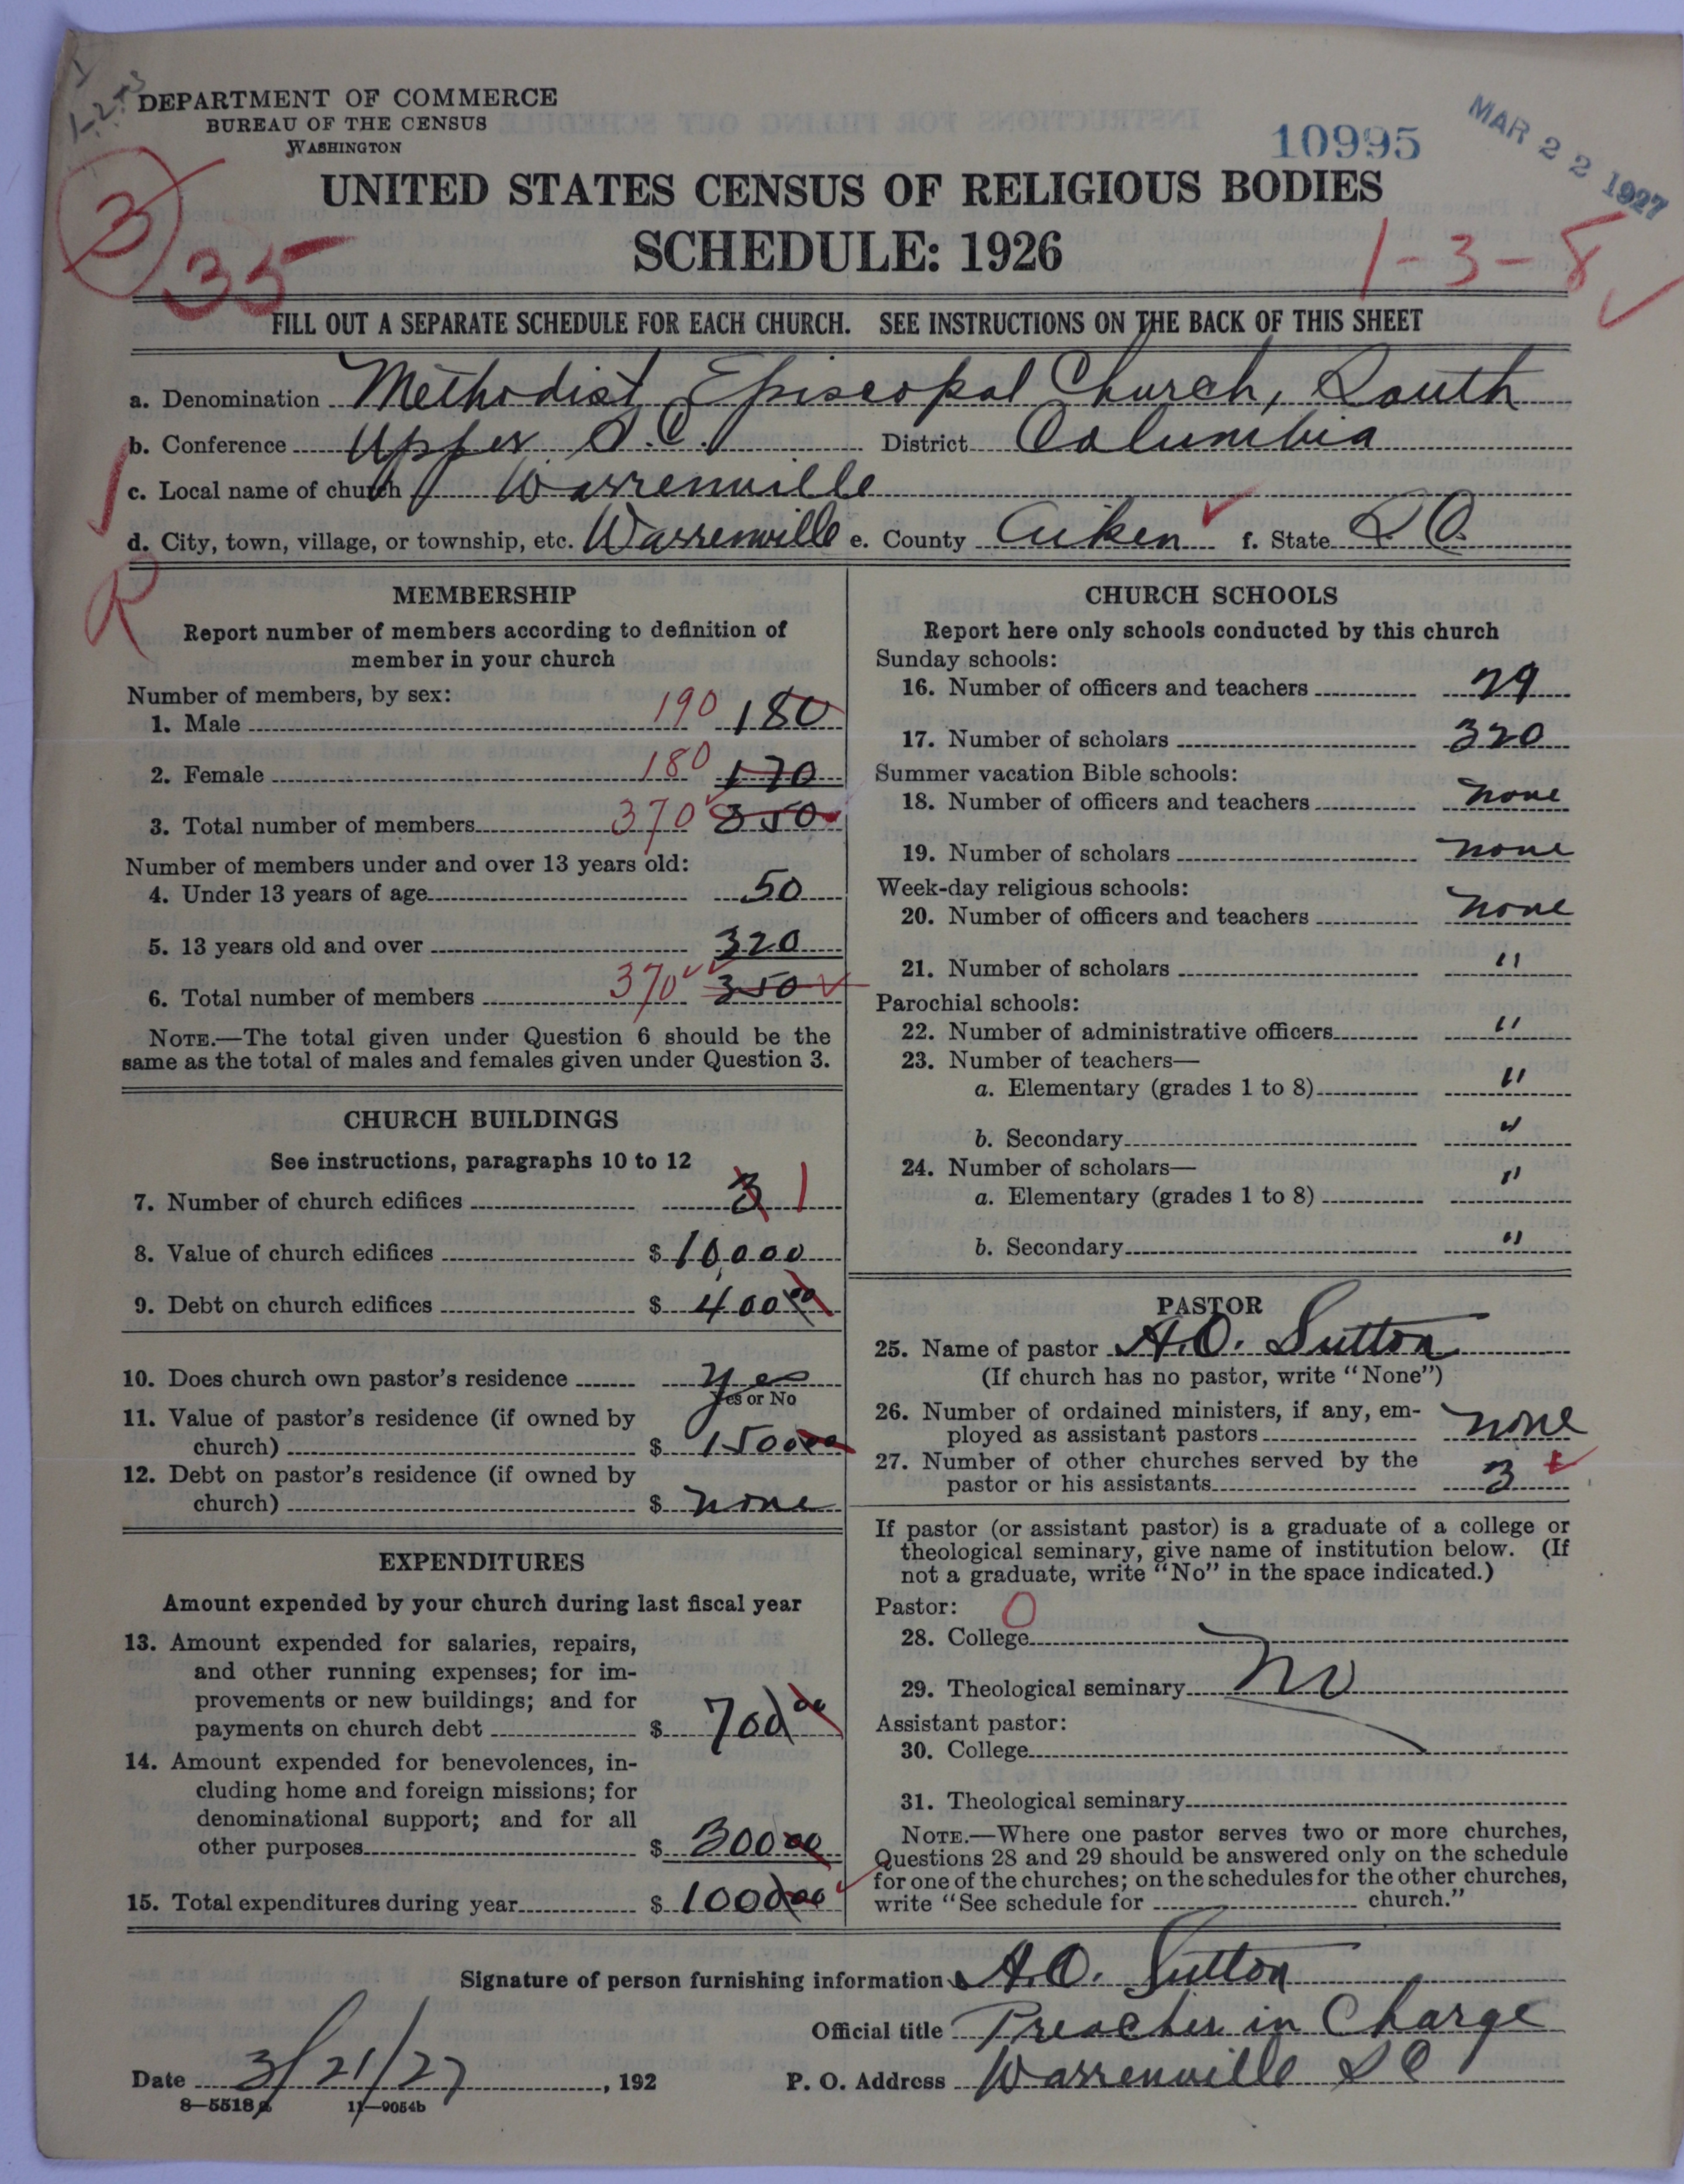 1-2-3
DEPARTMENT OF COMMERCE
BUREAU OF THE CENSUS
WASHINGTON
10995
MAR 22 1927
UNITED STATES CENSUS OF RELIGIOUS BODIES
SCHEDULE: 1926
3
35
1-3-8
FILL OUT A SEPARATE SCHEDULE FOR EACH CHURCH. SEE INSTRUCTIONS ON THE BACK OF THIS SHEET
a. Denomination Methodist Episcopal Church, South
b. Conference Upper S.C. District Columbia
c. Local name of church Warrenville
d. City, town, village, or township, etc. Warrenville e. County Aiken f. State S C.
R
MEMBERSHIP
Report number of members according to definition of
member in your church
Number of members, by sex:
1. Male 190 180
2. Female 180 170
3. Total number of members 370 350
Number of members under and over 13 years old:
4. Under 13 years of age 50
5. 13 years old and over 320
6. Total number of members 370 350
NOTE.—The total given under Question 6 should be the
same as the total of males and females given under Question 3.
CHURCH BUILDINGS
See instructions, paragraphs 10 to 12
7. Number of church edifices 3 1
8. Value of church edifices $ 10,000
9. Debt on church edifices $ 400 00
10. Does church own pastor's residence yes
Yes or No
11. Value of pastor's residence (if owned by
church) $ 1500 00
12. Debt on pastor's residence (if owned by
church) $ none
EXPENDITURES
Amount expended by your church during last fiscal year
13. Amount expended for salaries, repairs,
and other running expenses; for im-
provements or new buildings; and for
payments on church debt $ 700 00
14. Amount expended for benevolences, in-
cluding home and foreign missions; for
denominational support; and for all
other purposes $ 300 00
15. Total expenditures during year $ 1000 00
CHURCH SCHOOLS
Report here only schools conducted by this church
Sunday schools:
16. Number of officers and teachers 29
17. Number of scholars 320
Summer vacation Bible schools:
18. Number of officers and teachers none
19. Number of scholars none
Week-day religious schools:
20. Number of officers and teachers none
21. Number of scholars "
Parochial schools:
22. Number of administrative officers "
23. Number of teachers—
a. Elementary (grades 1 to 8) "
b. Secondary "
24. Number of scholars—
a. Elementary (grades 1 to 8) "
b. Secondary "
PASTOR
25. Name of pastor A.O. Sutton
(If church has no pastor, write "None")
26. Number of ordained ministers, if any, em-
ployed as assistant pastors none
27. Number of other churches served by the
pastor or his assistants 3
If pastor (or assistant pastor) is a graduate of a college or
theological seminary, give name of institution below. (If
not a graduate, write "No" in the space indicated.)
Pastor: O
28. College
29. Theological seminary No
Assistant pastor:
30. College
31. Theological seminary
NOTE.—Where one pastor serves two or more churches,
Questions 28 and 29 should be answered only on the schedule
for one of the churches; on the schedules for the other churches,
write "See schedule for church."
Signature of person furnishing information A.O. Sutton
Official title Preacher in Charge
Date 3/21/27, 192 P. O. Address Warrenville S C
8—5518a 11—9054b